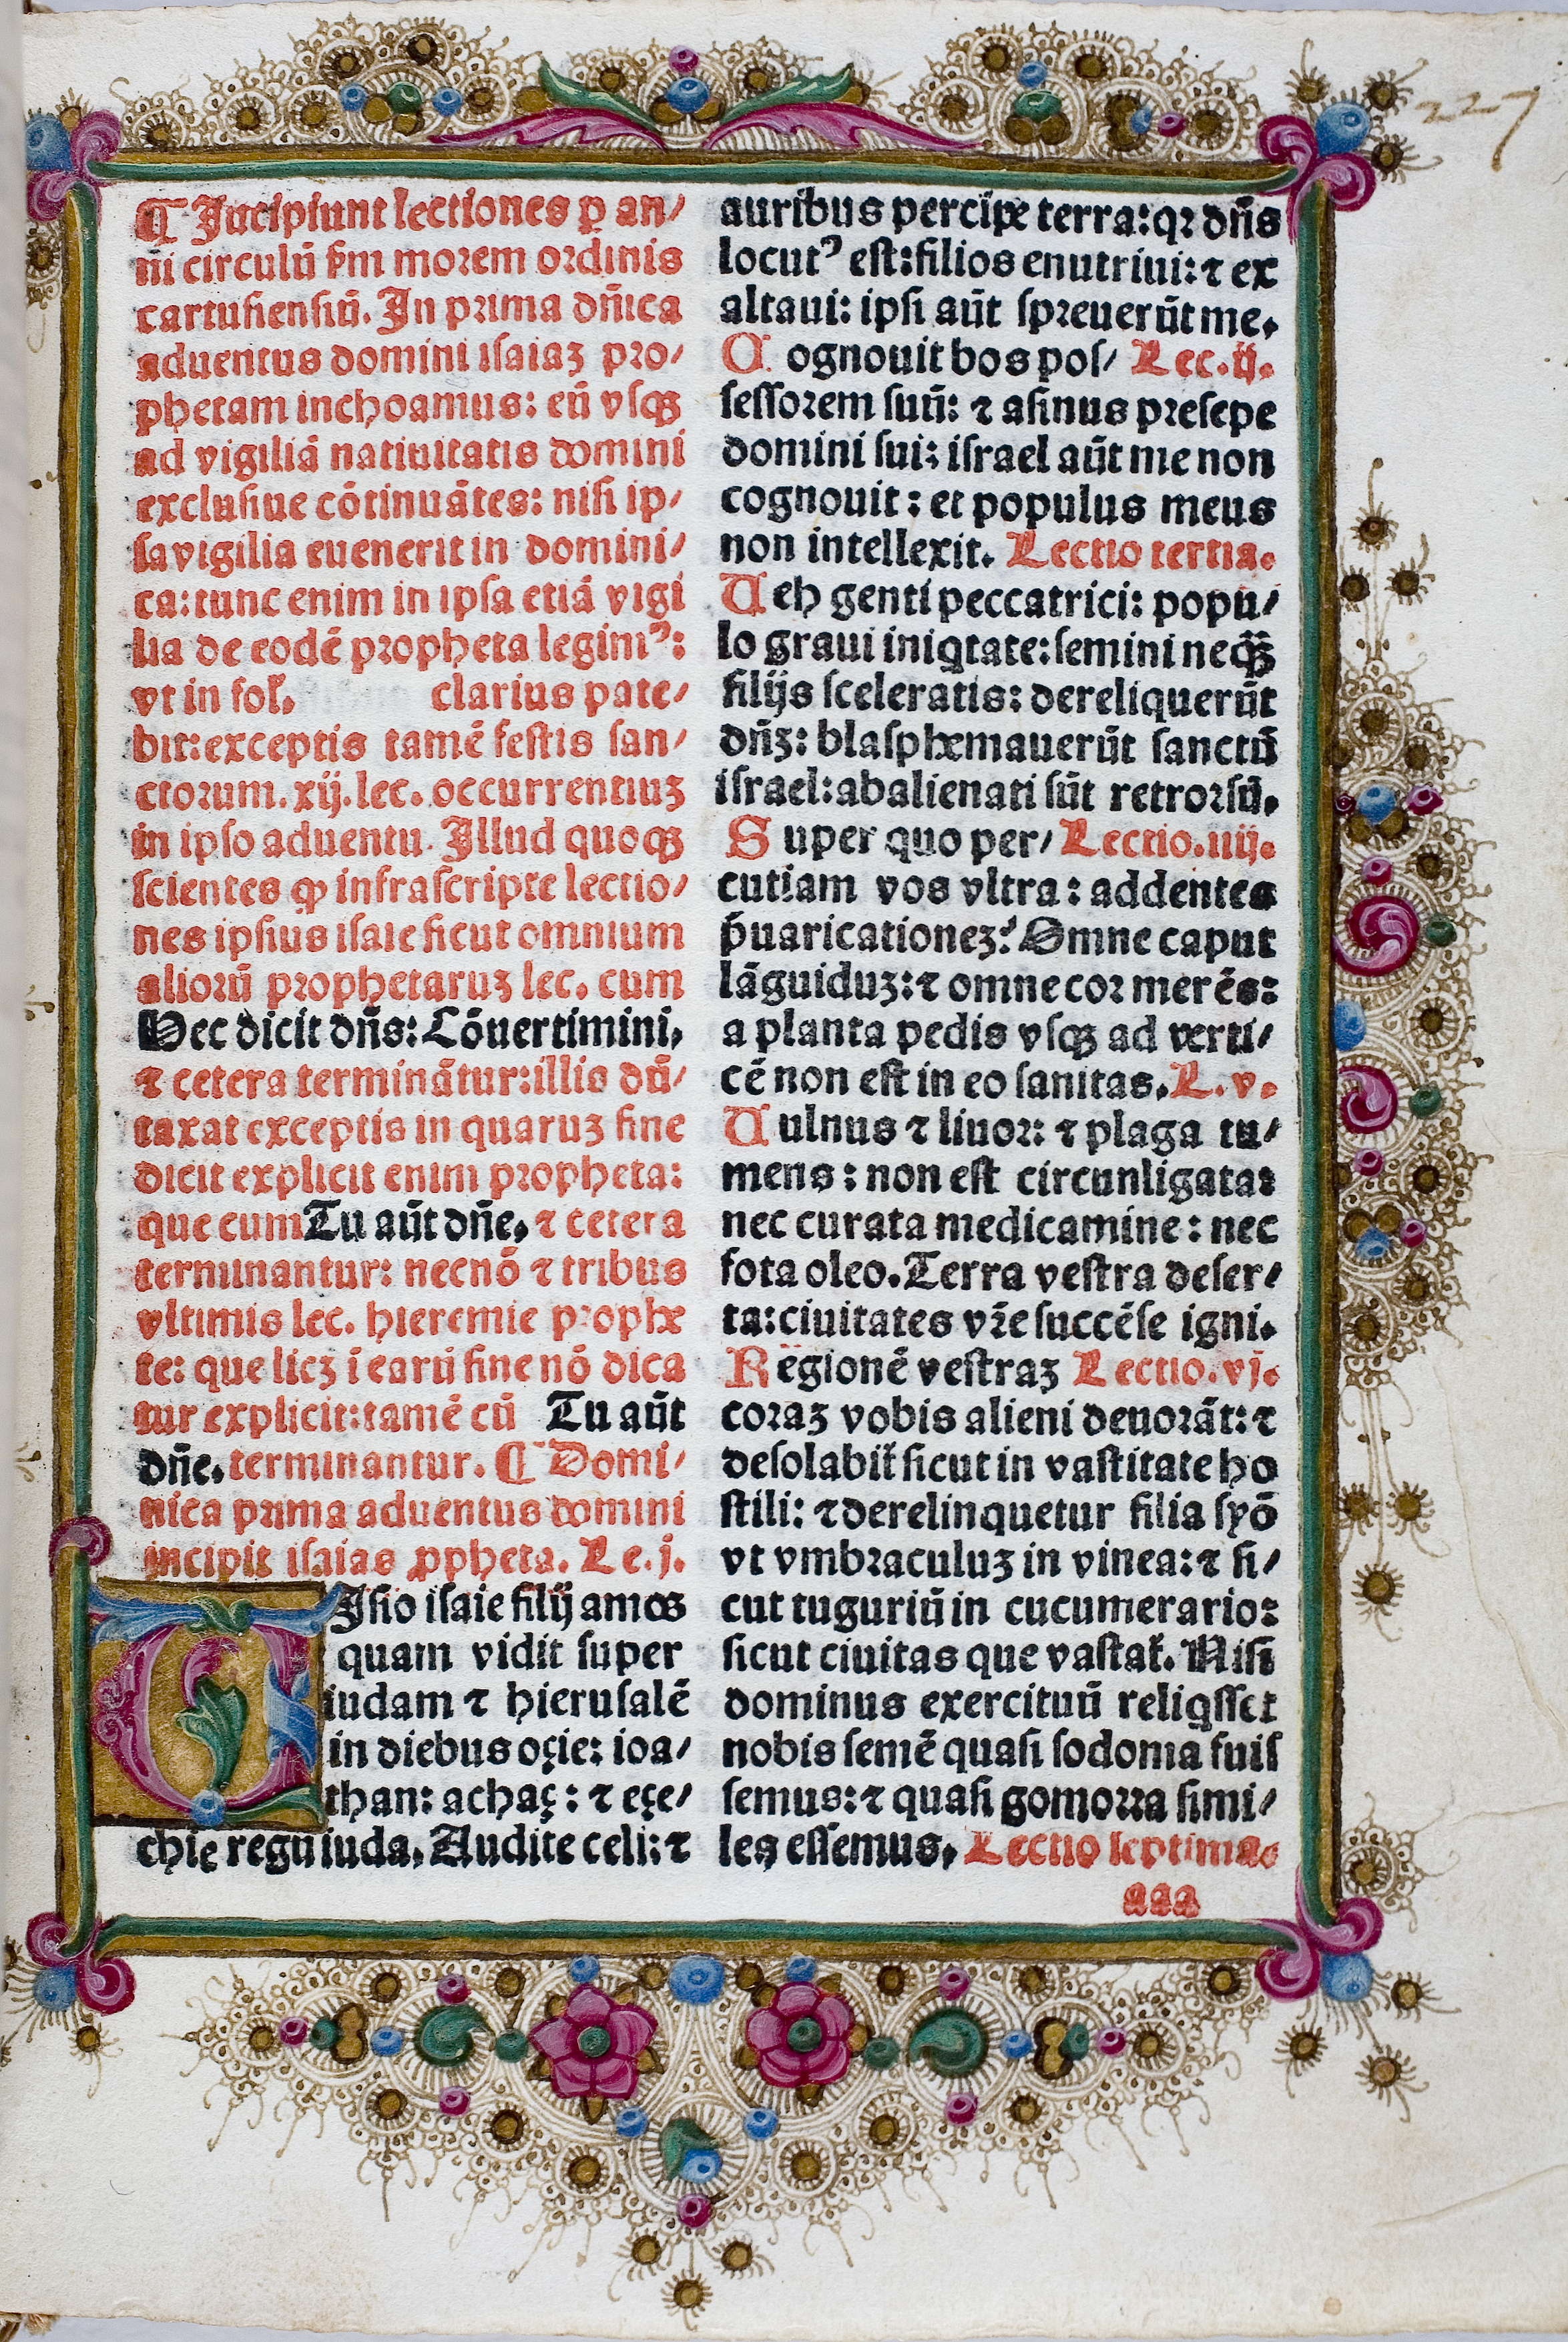 227
¶ Incipiunt lectiones ꝑ an⸗
ni circulū ẜm morem ordinis
cartusiensiū. In prima dñica
aduentus domini isaiaꝫ pro⸗
phetam inchoamus: eū vsqꝫ
ad vigiliā natiuitatis domini
exclusiue cōtinuātes: nisi ip⸗
sa vigilia euenerit in domini⸗
ca: tunc enim in ipsa etiā vigi
lia de eodē propheta legimꝰ:
vt in fol. clarius pate⸗
bit: exceptis tamē festis san⸗
ctorum. xij. lec. occurrentiuꝫ
in ipso aduentu. Illud quoqꝫ
scientes ꝙ infrascripte lectio⸗
nes ipsius isaie sicut omnium
aliorū prophetaruꝫ lec. cum
Hec dicit dñs: Cōuertimini,
⁊ cetera terminātur: illis dū⸗
taxat exceptis in quaruꝫ fine
dicit explicit enim propheta:
que cum Tu aūt dñe, ⁊ cetera
terminantur: necnō ⁊ tribus
vltimis lec. hieremie prophe
te: que licꝫ ī earū fine nō dica
tur explicit: tamē cū Tu aūt
dñe. terminantur. ¶ Domi⸗
nica prima aduentus domini
incipit isaias ꝓpheta. Le. j.
VIsio isaie filij amos
quam vidit super
iudam ⁊ hierusalē
in diebus oçie: ioa⸗
than: achaç: ⁊ eçe⸗
chie regū iuda. Audite celi: ⁊
auribus percipe terra: qꝛ dñs
locutꝰ est: filios enutriui: ⁊ ex
altaui: ipsi aūt spreuerūt me.
C ognouit bos pos⸗ Lec. ij.
sessorem suū: ⁊ asinus presepe
domini sui: israel aūt me non
cognouit: et populus meus
non intellexit. Lectio tertia.
V eh genti peccatrici: popu⸗
lo graui iniqtate: semini neqꝫ
filijs sceleratis: dereliquerūt
dñꝫ: blasphemauerūt sanctū
israel: abalienati sūt retrorsū.
S uper quo per⸗ Lectio. iiij.
cutiam vos vltra: addentes
p̄uaricationeꝫ? Omne caput
lāguiduꝫ: ⁊ omne cor merēs:
a planta pedis vsqꝫ ad verti⸗
cē non est in eo sanitas. L. v.
V ulnus ⁊ liuor: ⁊ plaga tu⸗
mens: non est circunligata:
nec curata medicamine: nec
fota oleo. Terra vestra deser⸗
ta: ciuitates vr̄e succēse igni.
R egionē vestraꝫ Lectio. vj.
coraꝫ vobis alieni deuorāt: ⁊
desolabit̄ sicut in vastitate ho
stili: ⁊ derelinquetur filia syō
vt vmbraculuꝫ in vinea: ⁊ si⸗
cut tuguriū in cucumerario:
sicut ciuitas que vastat̄. Nisi
dominus exercituū reliqsset
nobis semē quasi sodoma fuis
semus: ⁊ quasi gomorra simi⸗
les essemus. Lectio septima.
aaa